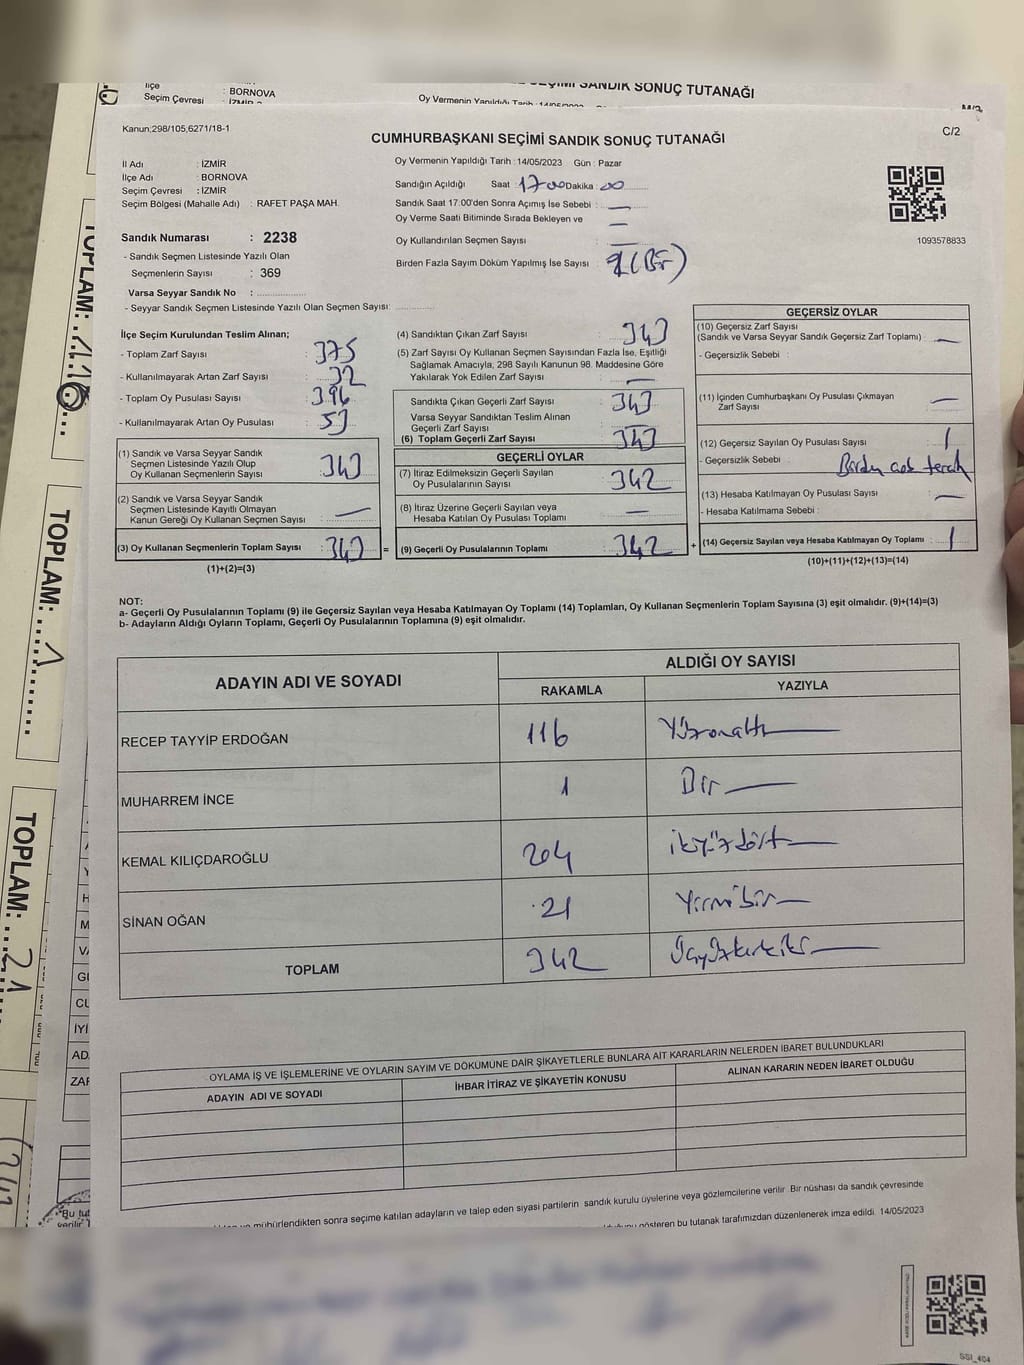 İlçe : BORNOVA
Seçim Çevresi : İZMİR 2
SEÇİMİ SANDIK SONUÇ TUTANAĞI
Oy Vermenin Yapıldığı Tarih : 14/05/2023
Kanun;298/105,6271/18-1
C/2
CUMHURBAŞKANI SEÇİMİ SANDIK SONUÇ TUTANAĞI
İl Adı : İZMİR
İlçe Adı : BORNOVA
Seçim Çevresi : İZMİR
Seçim Bölgesi (Mahalle Adı) : RAFET PAŞA MAH.
Oy Vermenin Yapıldığı Tarih : 14/05/2023 Gün : Pazar
Sandığın Açıldığı Saat : 17 00 Dakika : 00
Sandık Saat 17:00'den Sonra Açımış İse Sebebi : —
Oy Verme Saati Bitiminde Sırada Bekleyen ve
Oy Kullandırılan Seçmen Sayısı : —
Birden Fazla Sayım Döküm Yapılmış İse Sayısı : 1 (Bir)
1093578833
Sandık Numarası : 2238
- Sandık Seçmen Listesinde Yazılı Olan
Seçmenlerin Sayısı : 369
Varsa Seyyar Sandık No : ................
- Seyyar Sandık Seçmen Listesinde Yazılı Olan Seçmen Sayısı: ............
İlçe Seçim Kurulundan Teslim Alınan;
- Toplam Zarf Sayısı : 375
- Kullanılmayarak Artan Zarf Sayısı : 32
- Toplam Oy Pusulası Sayısı : 396
- Kullanılmayarak Artan Oy Pusulası : 53
(1) Sandık ve Varsa Seyyar Sandık
Seçmen Listesinde Yazılı Olup
Oy Kullanan Seçmenlerin Sayısı : 343
(2) Sandık ve Varsa Seyyar Sandık
Seçmen Listesinde Kayıtlı Olmayan
Kanun Gereği Oy Kullanan Seçmen Sayısı : —
(3) Oy Kullanan Seçmenlerin Toplam Sayısı : 343 =
(1)+(2)=(3)
(4) Sandıktan Çıkan Zarf Sayısı : 343
(5) Zarf Sayısı Oy Kullanan Seçmen Sayısından Fazla İse, Eşitliği
Sağlamak Amacıyla, 298 Sayılı Kanunun 98. Maddesine Göre
Yakılarak Yok Edilen Zarf Sayısı : —
Sandıkta Çıkan Geçerli Zarf Sayısı : 343
Varsa Seyyar Sandıktan Teslim Alınan
Geçerli Zarf Sayısı : —
(6) Toplam Geçerli Zarf Sayısı : 343
GEÇERLİ OYLAR
(7) İtiraz Edilmeksizin Geçerli Sayılan
Oy Pusulalarının Sayısı : 342
(8) İtiraz Üzerine Geçerli Sayılan veya
Hesaba Katılan Oy Pusulası Toplamı : —
(9) Geçerli Oy Pusulalarının Toplamı : 342 +
GEÇERSİZ OYLAR
(10) Geçersiz Zarf Sayısı
(Sandık ve Varsa Seyyar Sandık Geçersiz Zarf Toplamı) : —
- Geçersizlik Sebebi :
(11) İçinden Cumhurbaşkanı Oy Pusulası Çıkmayan
Zarf Sayısı : —
(12) Geçersiz Sayılan Oy Pusulası Sayısı : 1
- Geçersizlik Sebebi : Birden çok tercih
(13) Hesaba Katılmayan Oy Pusulası Sayısı : —
- Hesaba Katılmama Sebebi :
(14) Geçersiz Sayılan veya Hesaba Katılmayan Oy Toplamı : 1
(10)+(11)+(12)+(13)=(14)
NOT:
a- Geçerli Oy Pusulalarının Toplamı (9) ile Geçersiz Sayılan veya Hesaba Katılmayan Oy Toplamı (14) Toplamları, Oy Kullanan Seçmenlerin Toplam Sayısına (3) eşit olmalıdır. (9)+(14)=(3)
b- Adayların Aldığı Oyların Toplamı, Geçerli Oy Pusulalarının Toplamına (9) eşit olmalıdır.
ADAYIN ADI VE SOYADI
ALDIĞI OY SAYISI
RAKAMLA YAZIYLA
RECEP TAYYİP ERDOĞAN 116 Yüzonaltı
MUHARREM İNCE 1 Bir
KEMAL KILIÇDAROĞLU 204 ikiyüzdört
SİNAN OĞAN 21 Yirmibir
TOPLAM 342 Üçyüzkırkiki
OYLAMA İŞ VE İŞLEMLERİNE VE OYLARIN SAYIM VE DÖKÜMÜNE DAİR ŞİKAYETLERLE BUNLARA AİT KARARLARIN NELERDEN İBARET BULUNDUKLARI
ADAYIN ADI VE SOYADI İHBAR İTİRAZ VE ŞİKAYETİN KONUSU ALINAN KARARIN NEDEN İBARET OLDUĞU
mühürlendikten sonra seçime katılan adayların ve talep eden siyasi partilerin sandık kurulu üyelerine veya gözlemcilerine verilir. Bir nüshası da sandık çevresinde
gösteren bu tutanak tarafımızdan düzenlenerek imza edildi. 14/05/2023
TOPLAM:
TOPLAM: 1
TOPLAM: 21
SSI_404